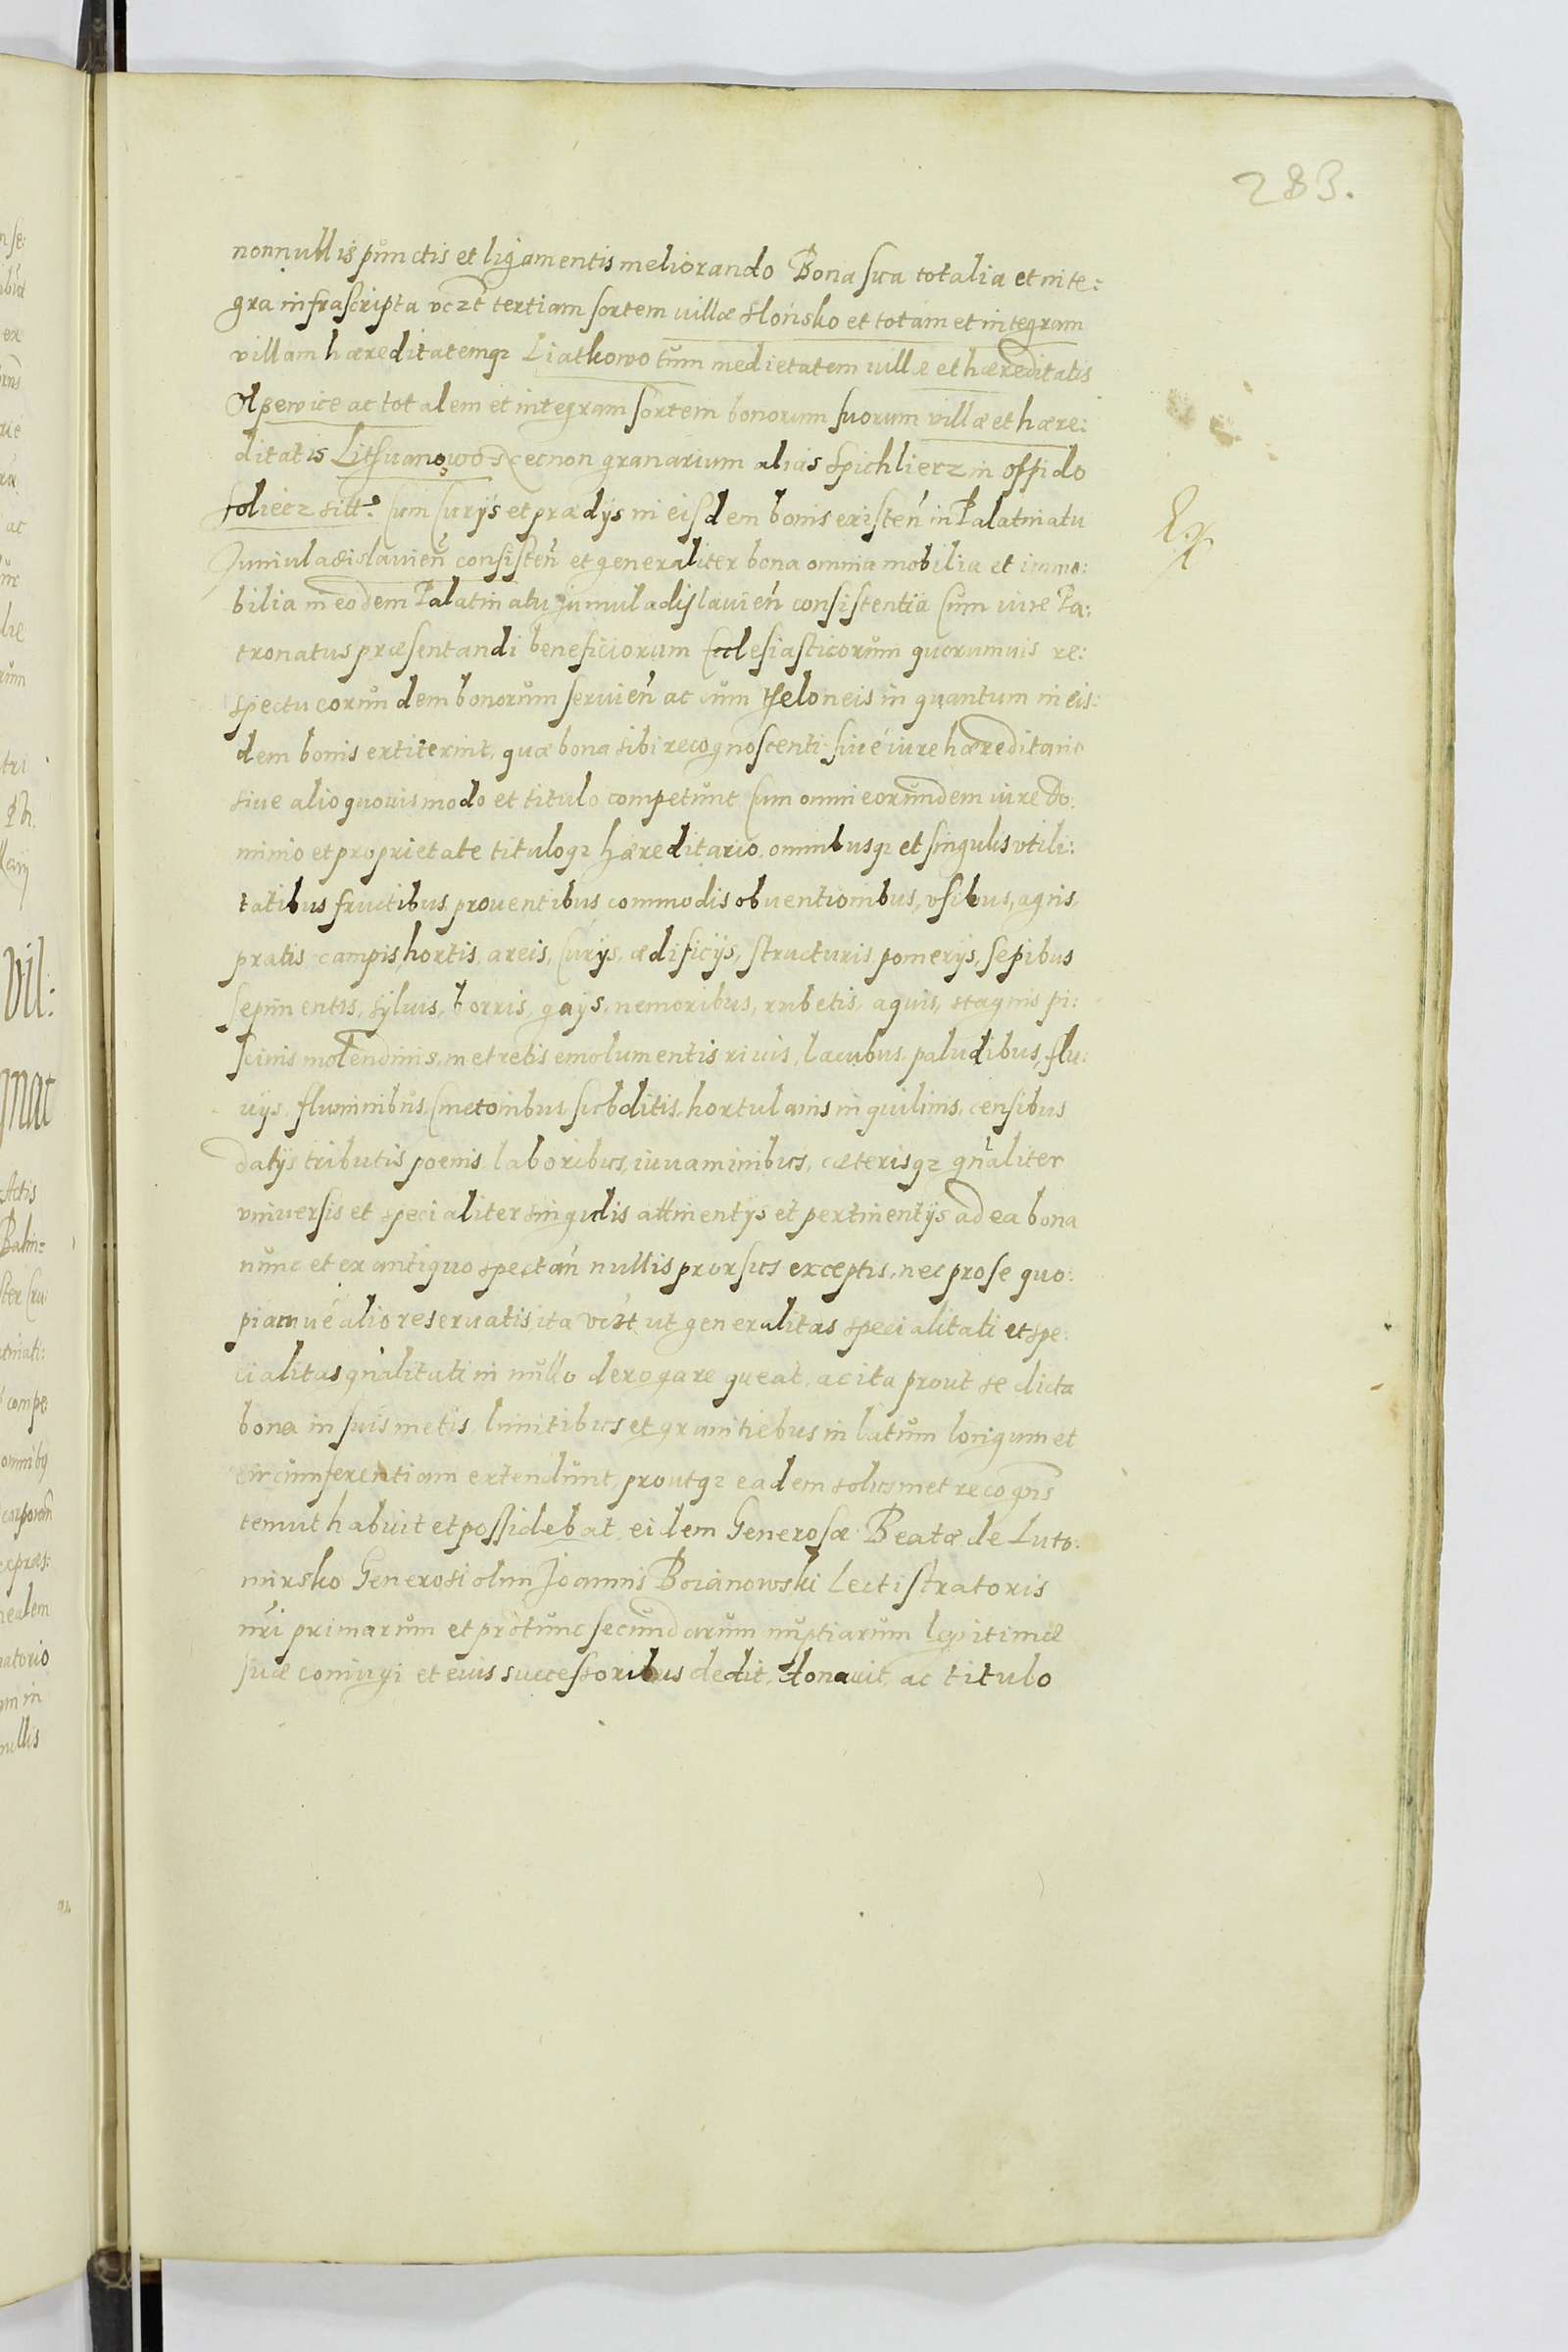 283.
nonnullis punctis et ligamentis meliorando Bona sua totalia et inte:
gra infrascripta vczt tertiam sortem villæ Słońsko et totam et integram
villam hæreditatemqz Liatkowo tum medietatem villæ et hæreditatis
Opewice ac totalem et integram sortem bonorum suorum villæ et hære:
ditatis Lithuanowo necnon granarium alias Spichlierz in oppido
Soliecz sitt. Cum Curijs et prædijs in eisdem bonis existen in Palatinatu
Juniuladislauien consisten et generaliter bona omnia mobilia et immo:
bilia in eodem Palatinatu Juniuladislauien consistentia Cum iure Pa:
tronatus præsentandi beneficiorum Ecclesiasticorum quorumuis re:
spectu eorundem bonorum seruien ac cum theloneis in quantum in eis:
dem bonis extiterint, quæ bona sibi recognoscenti siue iure hæreditario
siue alio quouis modo et titulo competunt Cum omni eorundem iure do:
minio et proprietate tituloqz hæreditario, omnibusqz et singulis vtili:
tatibus fructibus prouentibus commodis obuentionibus, vsibus, agris,
pratis campis, hortis, areis, Curijs, ædificijs, structuris pomerijs, sepibus
sepimentis, syluis, borris, gays, nemoribus, rubetis, aquis, stagnis pi:
scinis molendinis, metretis emolumentis riuis, lacubus paludibus, flu:
uijs, fluminibus, Cmetonibus subditis, hortulanis inquilinis, censibus
datijs tributis poenis laboribus, iuuaminibus, cæterisqz gnaliter
vniuersis et specialiter singulis attinentijs et pertinentijs ad ea bona
nunc et ex antiquo spectan nullis prorsus exceptis, nec pro se quo:
piamue alio reseruatis ita vczt ut generalitas specialitati et spe:
cialitas gnalitati in nullo derogare queat, ac ita prout se dicta
bona in suis metis, limitibus et granitiebus in latum longum et
circumferentiam extendunt, proutqz eadem solusmet recogns
tenuit habuit et possidebat eidem Generosæ Beatæ de Luto:
mirsko Generosi olim Joannis Boianowski Lectistratoris
nri primarum et protunc secundarum nuptiarum legitimæ
suæ coniugi et eius successoribus dedit, donauit, ac titulo